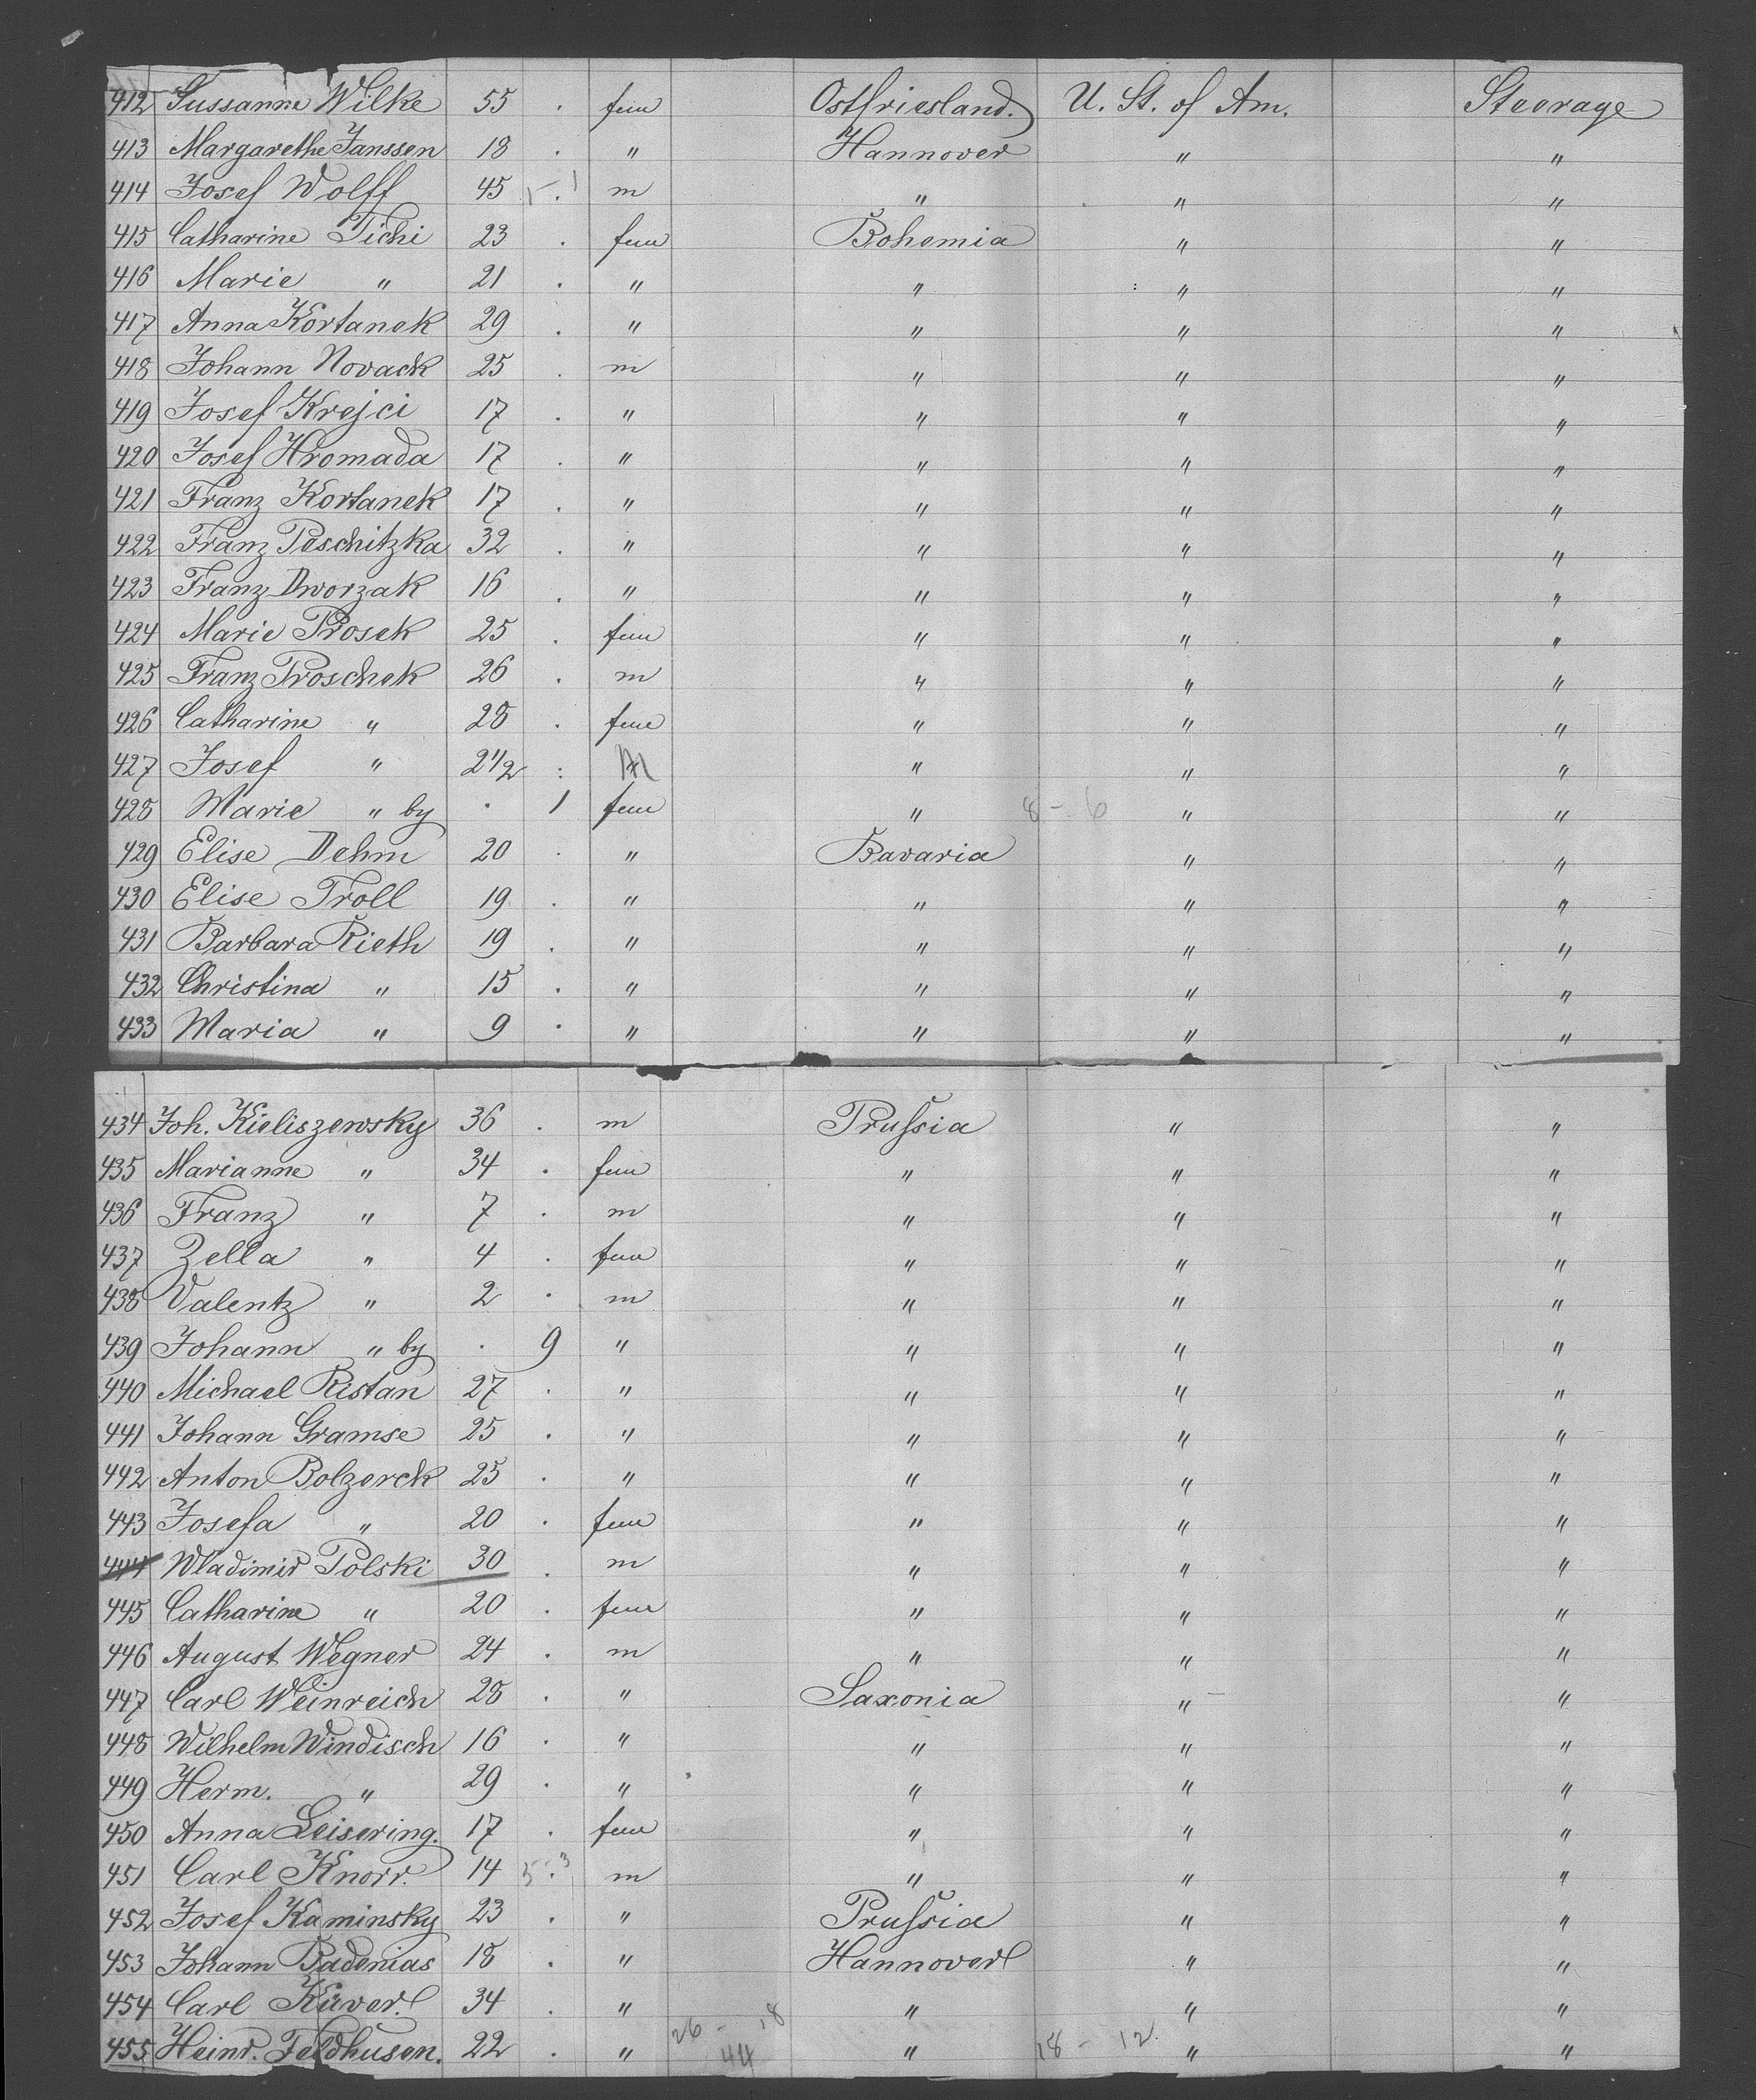 412 Sussanne Wilke 55 . fem Ostfriesland. U. St. of Am. Steerage
413 Margarethe Janssen 18 . " Hannover " "
414 Josef Wolff 45 . m " " "
415 Catharine Tichi 23 . fem Bohemia " "
416 Marie " 21 . " " " "
417 Anna Kortanek 29 . " " " "
418 Johann Novack 25 . m " " "
419 Josef Krejci 17 . " " " "
420 Josef Hromada 17 . " " " "
421 Franz Kortanek 17 . " " " "
422 Franz Peschitzka 32 . " " " "
423 Franz Dworzak 16 . " " " "
424 Marie Prosek 25 . fem " " "
425 Franz Proschek 26 . m " " "
426 Catharine " 28 . fem " " "
427 Josef " 2 1/2 : M " " "
428 Marie " by . 1 fem " 8 - 6 " "
429 Elise Dehm 20 . " Bavaria " "
430 Elise Troll 19 . " " " "
431 Barbara Rieth 19 . " " " "
432 Christina " 15 . " " " "
433 Maria " 9 . " " " "
434 Joh. Kieliszewsky 36 . m Prussia " "
435 Marianne " 34 . fem " " "
436 Franz " 7 . m " " "
437 Zella " 4 . fem " " "
438 Valentz " 2 . m " " "
439 Johann " by . 9 " " " "
440 Michael Ristan 27 . " " " "
441 Johann Gramse 25 . " " " "
442 Anton Bolzerck 25 . " " " "
443 Josefa " 20 . fem " " "
444 Wladimir Polski 30 . m " " "
445 Catharine " 20 . fem " " "
446 August Wegner 24 . m " " "
447 Carl Weinreich 28 . " Saxonia " "
448 Wilhelm Windisch 16 . " " " "
449 Herm. " 29 . " " " "
450 Anna Leisering. 17 . fem " " "
451 Carl Knorr. 14 5 . 3 m " " "
452 Josef Kaminsky 23 . " Prussia " "
453 Johann Badenias 18 . " Hannover " "
454 Carl Küver. 34 . " " " "
455 Heinr. Feldhusen. 22 . " 26 - 18 44 " 18 - 12. " "